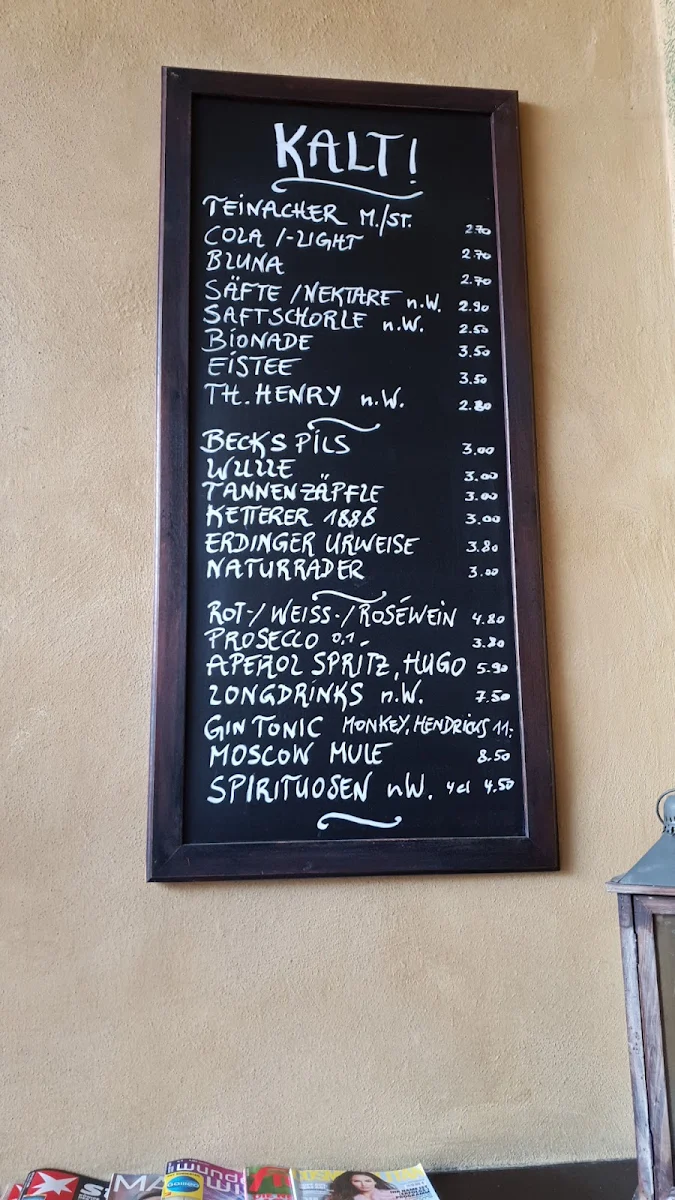 KALT!
TEINACHER M./ST. 2.70
COLA /-LIGHT 2.70
BLUNA 2.70
SÄFTE /NEKTARE n.W. 2.90
SAFTSCHORLE n.W. 2.50
BIONADE 3.50
EISTEE 3.50
TH. HENRY n.W. 2.80
BECKS PILS 3.00
WULLE 3.00
TANNENZÄPFLE 3.00
KETTERER 1888 3.00
ERDINGER URWEISE 3.80
NATURRADER 3.00
ROT-/WEISS-/ROSÉWEIN 4.80
PROSECCO 0,1 3.80
APEROL SPRITZ, HUGO 5.90
LONGDRINKS n.W. 7.50
GIN TONIC MONKEY, HENDRICKS 11.-
MOSCOW MULE 8.50
SPIRITUOSEN nW. 4cl 4.50